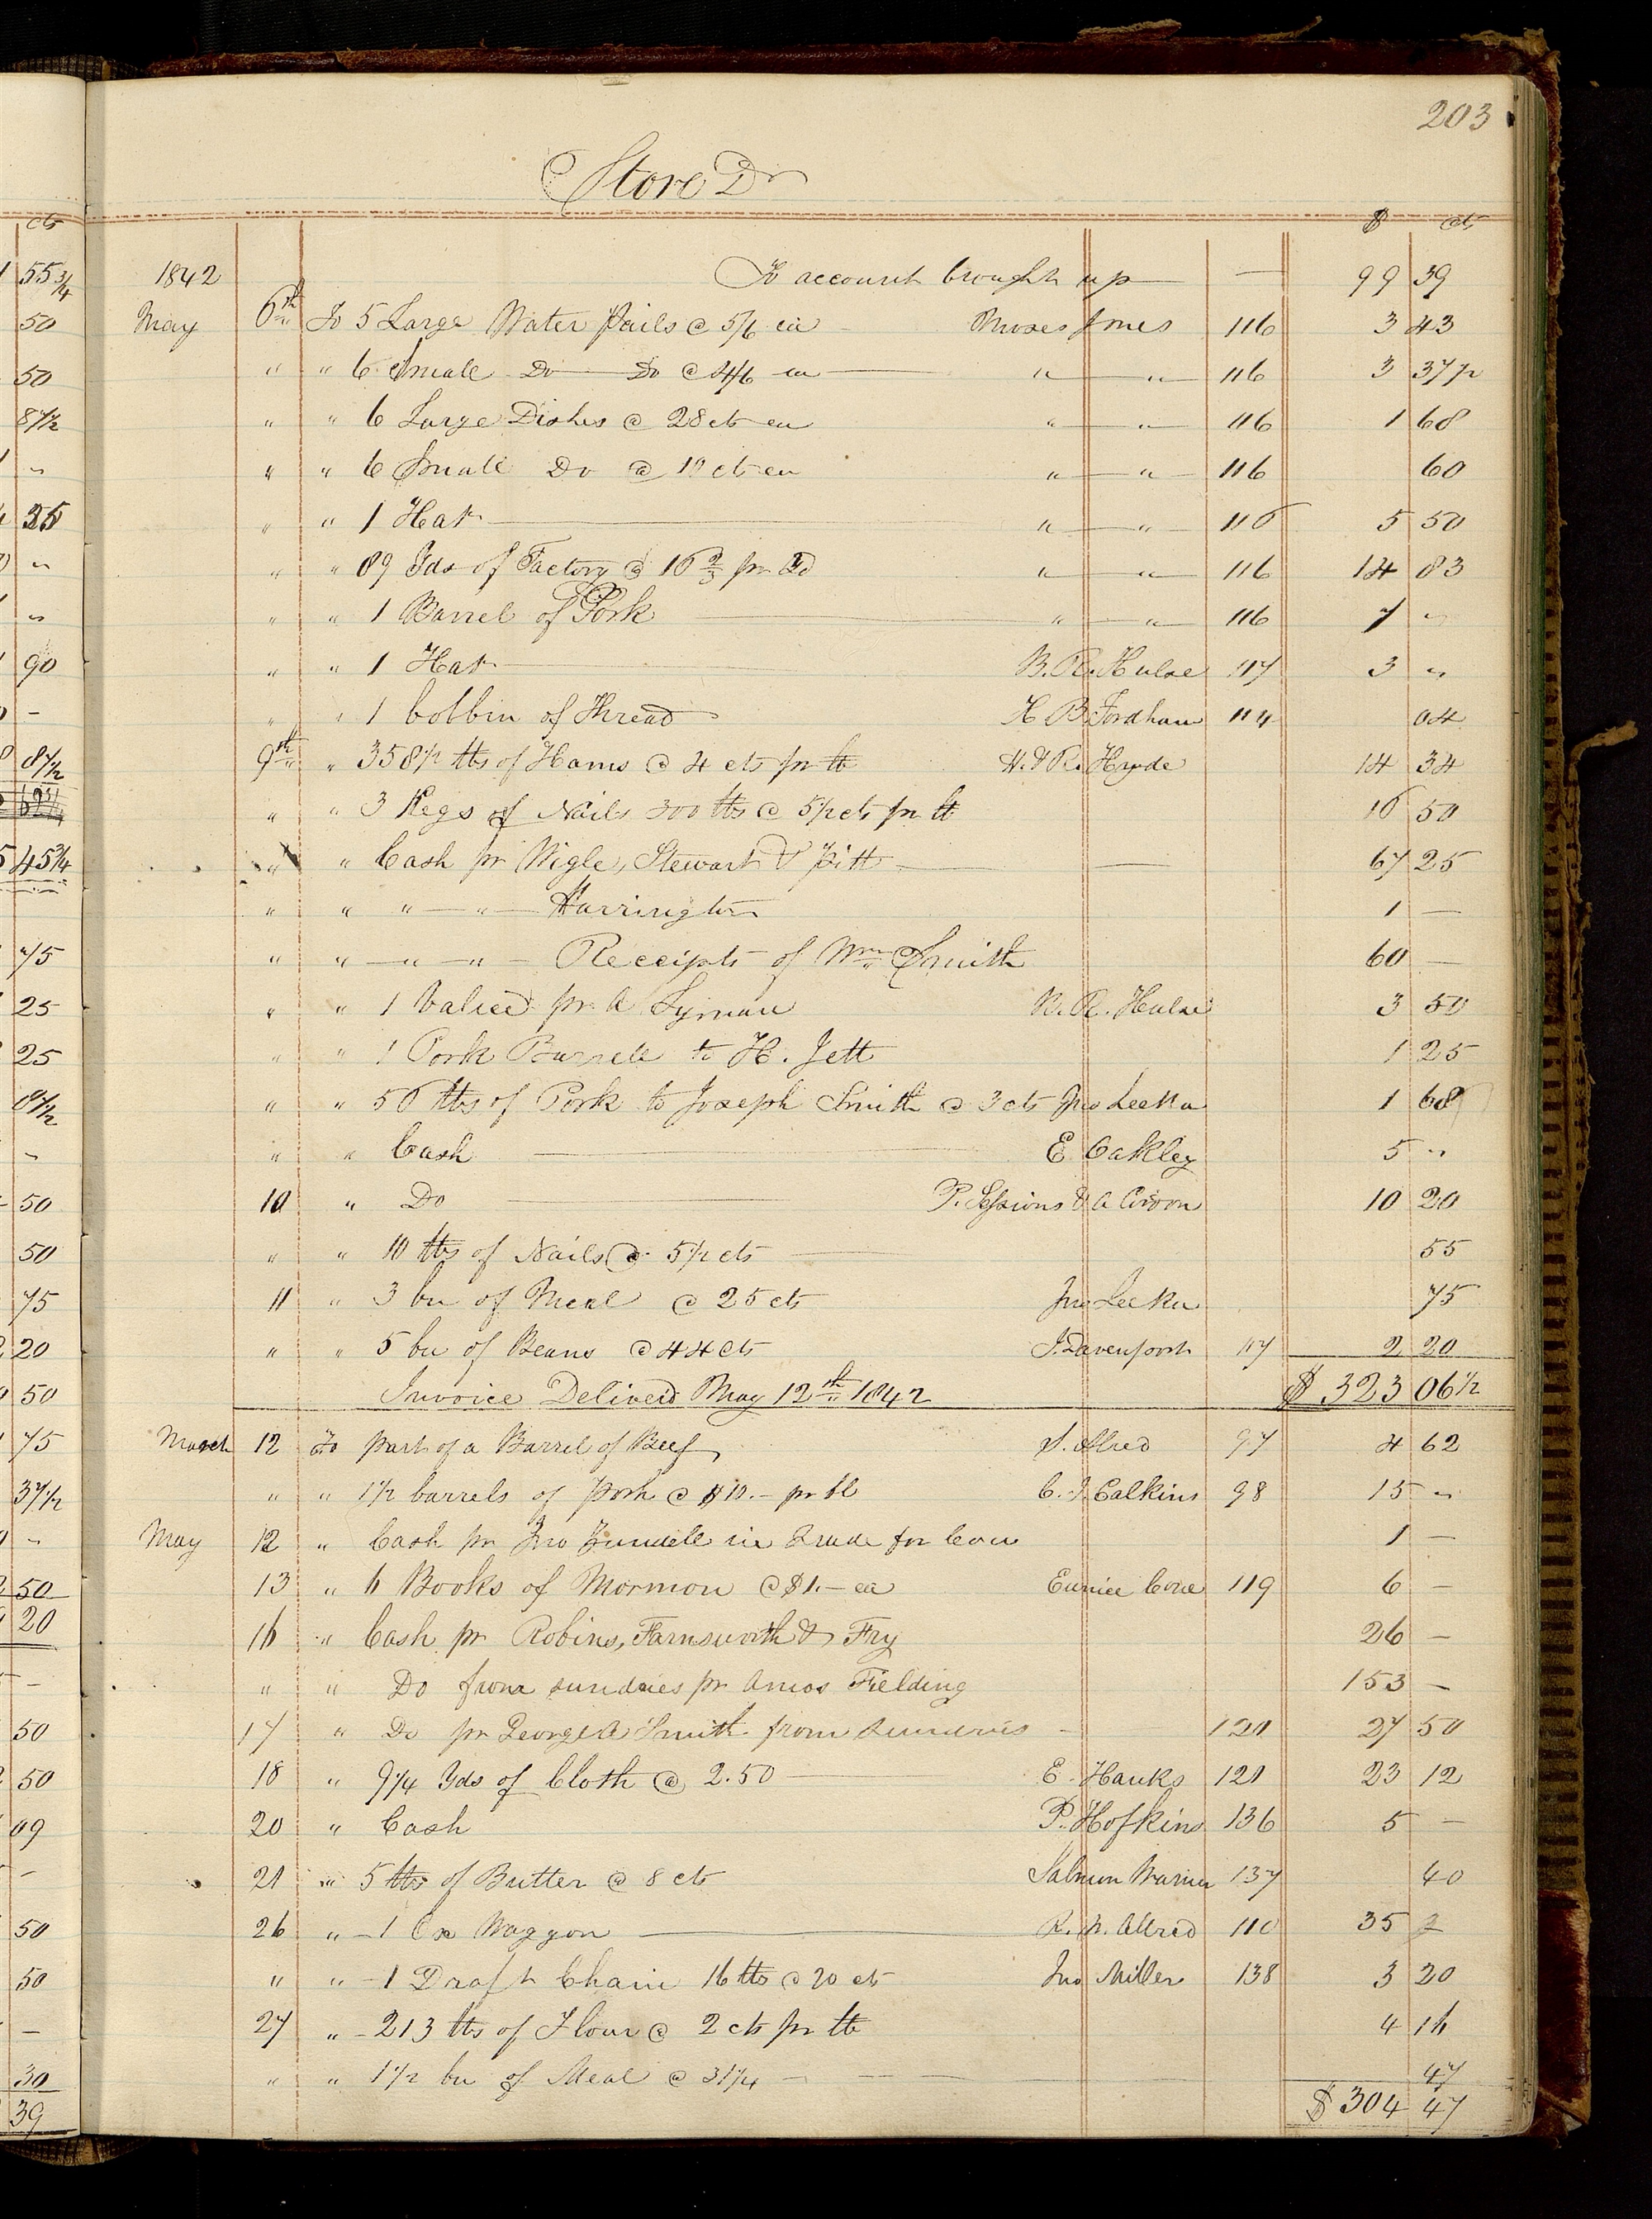 203
Store Dr
$ cts
1842 To account brought up — 99 39
May 6th To 5 Large Water Pails @ 5/6 ea Moses Jones 116 3 43
" " 6 Small Do Do @ 4/6 ea " " 116 3 37 1/2
" " 6 Large Dishes @ 28 cts ea " " 116 1 68
" " 6 Small Do @ 10 cts ea " " 116 60
" " 1 Hat " " 116 5 50
" " 89 Yds of Factory @ 16 2/3 pr Yd " " 116 14 83
" " 1 Barrel of Pork " " 116 7 "
" " 1 Hat B. R. Hulse 117 3 "
" " 1 bobbin of Thread H B Fordham 114 04
9th " 358 1/2 lbs of Hams @ 4 cts pr lb H. & R. Hyde 14 34
" " 3 Kegs of Nails 300 lbs @ 5 1/2 cts pr lb 16 50
" " Cash pr Nigle, Stewart & Pitt — 67 25
" " " — " — Harrington 1 —
" " — " — " — Receipts of Wm Smith 60 —
" " 1 Valice pr A Lyman B. R. Hulse 3 50
" " 1 Pork Barrell to H. Jett 1 25
" " 56 lbs of Pork to Joseph Smith @ 3 cts Jno Leeka 1 68
" " Cash E Oakley 5 "
10 " Do P. Sessions & A Orvon 10 20
" " 10 lbs of Nails @ 5 1/2 cts 55
11 " 3 bu of Meal @ 25 cts Jno Leeka 75
" " 5 bu of Beans @ 44 cts J. Davenport 117 2 20
Invoice Deliver'd May 12th 1842 $ 323 06 1/2
March 12 To part of a Barrel of Beef S. Alred 97 4 62
" " 1 1/2 barrels of Pork @ $10.- pr bl C. J. Calkins 98 15 "
May 12 " Cash pr Jno Zundell in Trade for Cow 1 —
13 " 6 Books of Mormon @ $1.— ea Eunice Cone 119 6 —
16 " Cash pr Robins, Farnsworth & Fry 26 —
" " Do from sundries pr Amos Fielding 153 —
17 " Do pr George A Smith from sundries — 120 27 50
18 " 9 1/4 Yds of Cloth @ 2.50 E. Hanks 121 23 12
20 " Cash P. Hofkins 136 5 —
21 " 5 lbs of Butter @ 8 cts Salmon Warner 137 40
26 " - 1 Ox Waggon R. N. Allred 110 35
" " - 1 Draft Chain 16 lbs @ 20 cts Jno Miller 138 3 20
27 " - 213 lbs of Flour @ 2 cts pr lb 4 16
" " 1 1/2 bu of Meal @ 31 1/4 — 47
$ 304 47
cts
55 3/4
50
50
87 1/2
"
25
"
"
90
-
87 1/2
45 3/4
75
25
25
87 1/2
"
50
50
75
20
50
75
37 1/2
"
50
20
-
50
50
09
-
50
50
—
30
39